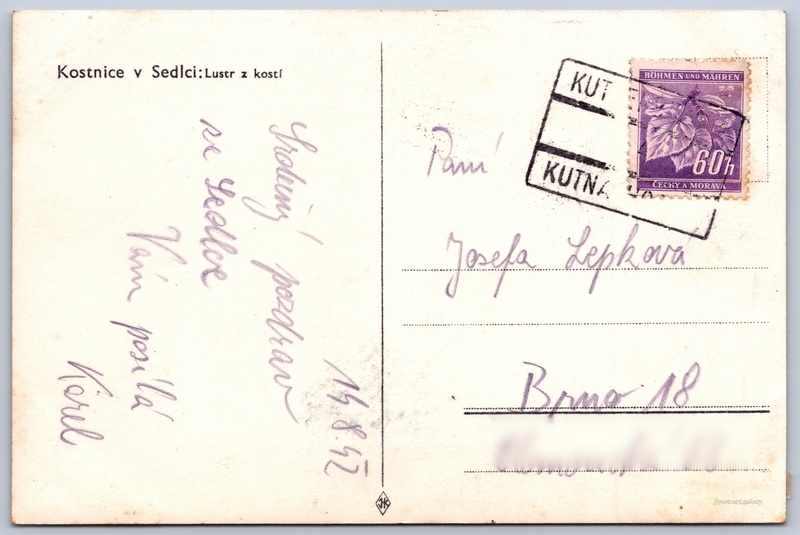 Kostnice v Sedlci: Lustr z kostí
Srdečný pozdrav
ze Sedlce
Vám posílá
Karel
14.8.42
KUT
KUTNÁ
BÖHMEN UND MÄHREN
60h
ČECHY A MORAVA
Paní
Josefa Lepková
Brno 18